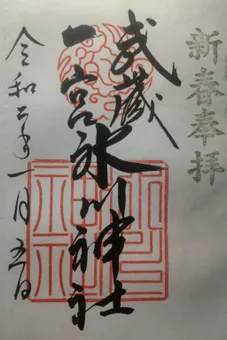 新春奉拝
武蔵
一宮氷川神社
令和六年一月五日